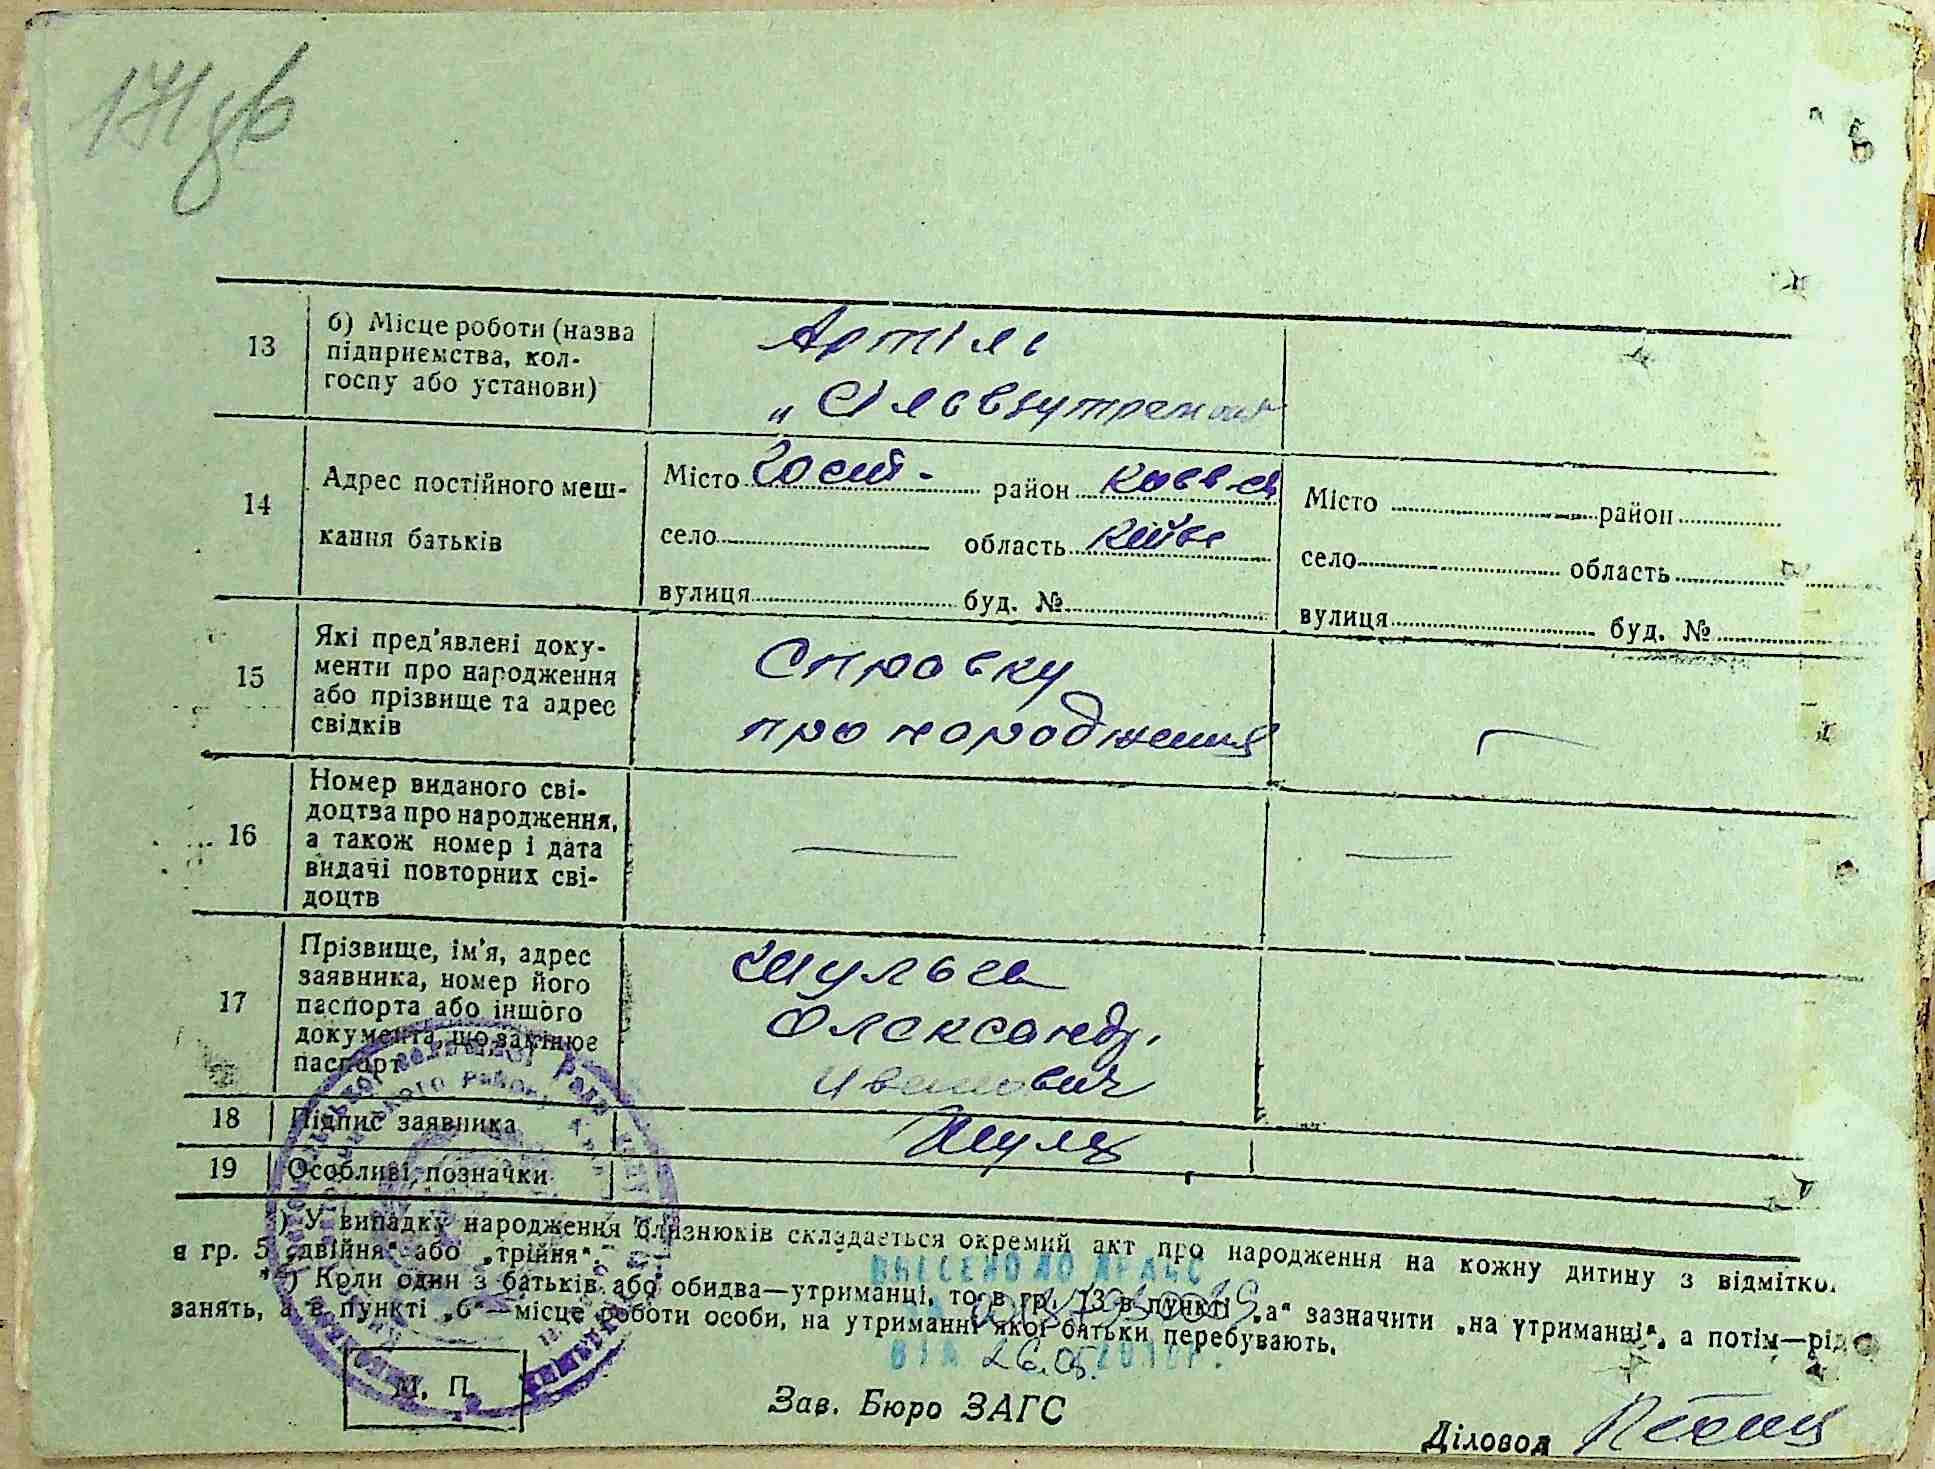 171 зв
13
б) Місце роботи (назва
підприємства, кол-
госпу або установи)
Артіль
14
Адрес постійного меш-
кання батьків
Місто район
село область
вулиця буд. №
Місто район
село область
вулиця буд. №
15
Які пред'явлені доку-
менти про народження
або прізвище та адрес
свідків
Справку
про народження
16
Номер виданого сві-
доцтва про народження,
а також номер і дата
видачі повторних сві-
доцтв
17
Прізвище, ім'я, адрес
заявника, номер його
паспорта або іншого
документа, що замінює
паспорт
Шульга
Олександр
Иванович
18
Підпис заявника
19
Особливі позначки
*) У випадку народження близнюків складається окремий акт про народження на кожну дитину з відмітко
в гр. 5 „двійня“ або „трійня“.
**) Коли один з батьків або обидва—утриманці, то в гр. 13 в пункті „а“ зазначити „на утриманні“, а потім—рід
занять, а в пункті „б“—місце роботи особи, на утриманні якої батьки перебувають.
ВНЕСЕНО ДО ДРАЦС
М. П.
Зав. Бюро ЗАГС
Діловод